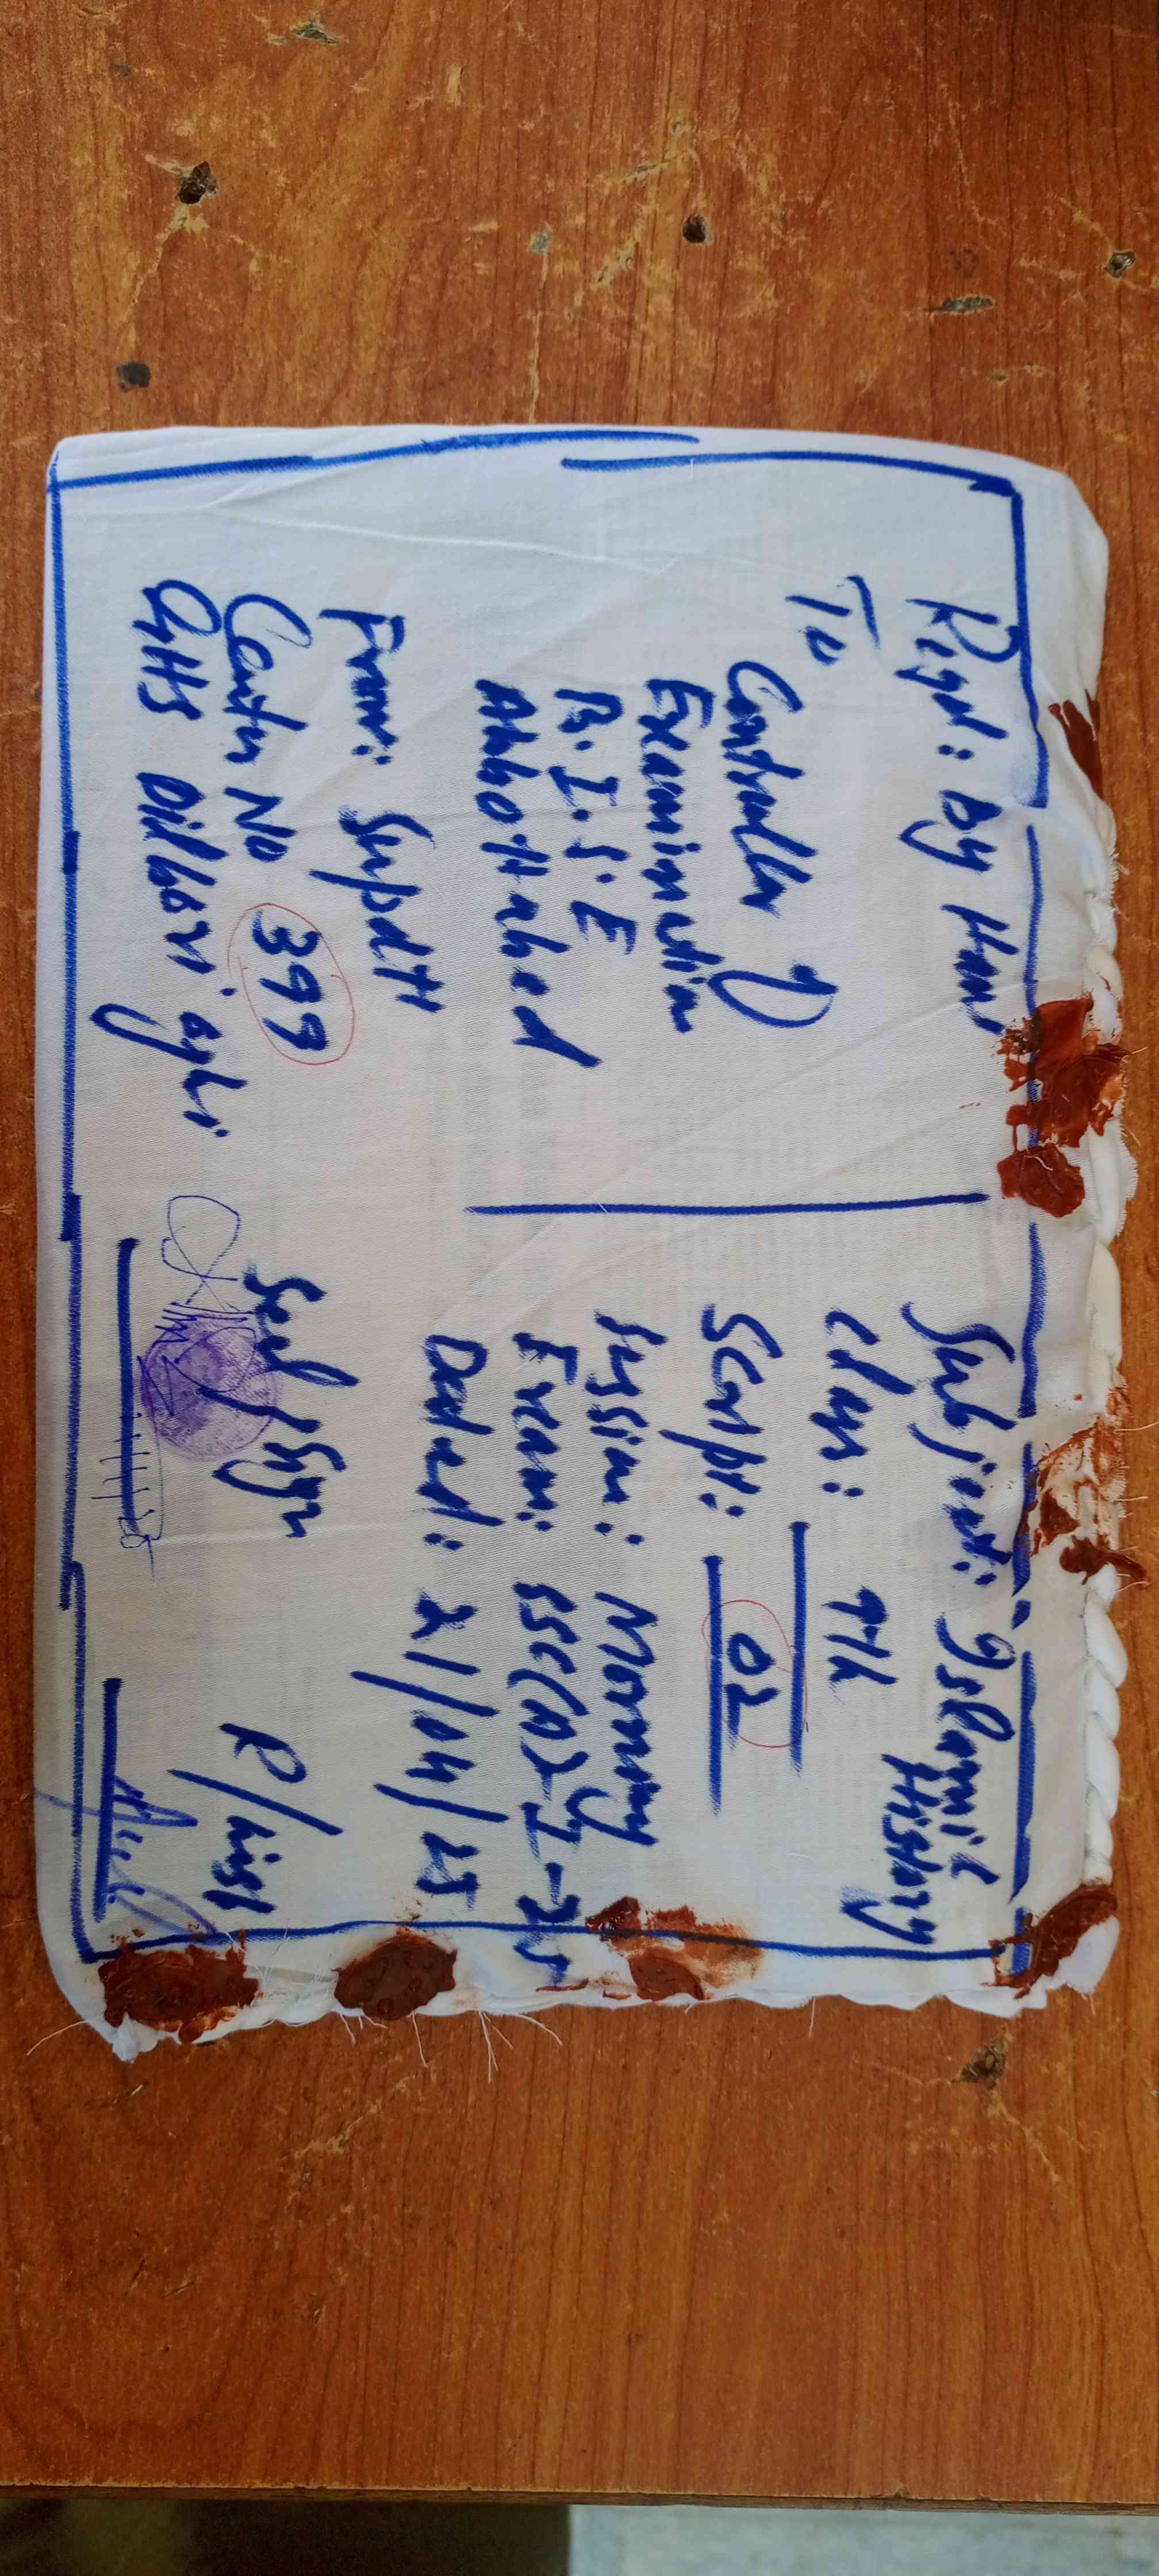 Regd: By Hand
To
Controller of
Examination
B.I.S.E
Abbottabad
From: Supdtt
Center No 399
GHS Dilbori oghi
Subject: Islamic
History
Class: 9th
Script: 02
Session: Morning
Exam: SSC(A)-I-25
Dated: 21/04/25
Seal/Sign
R/Insp